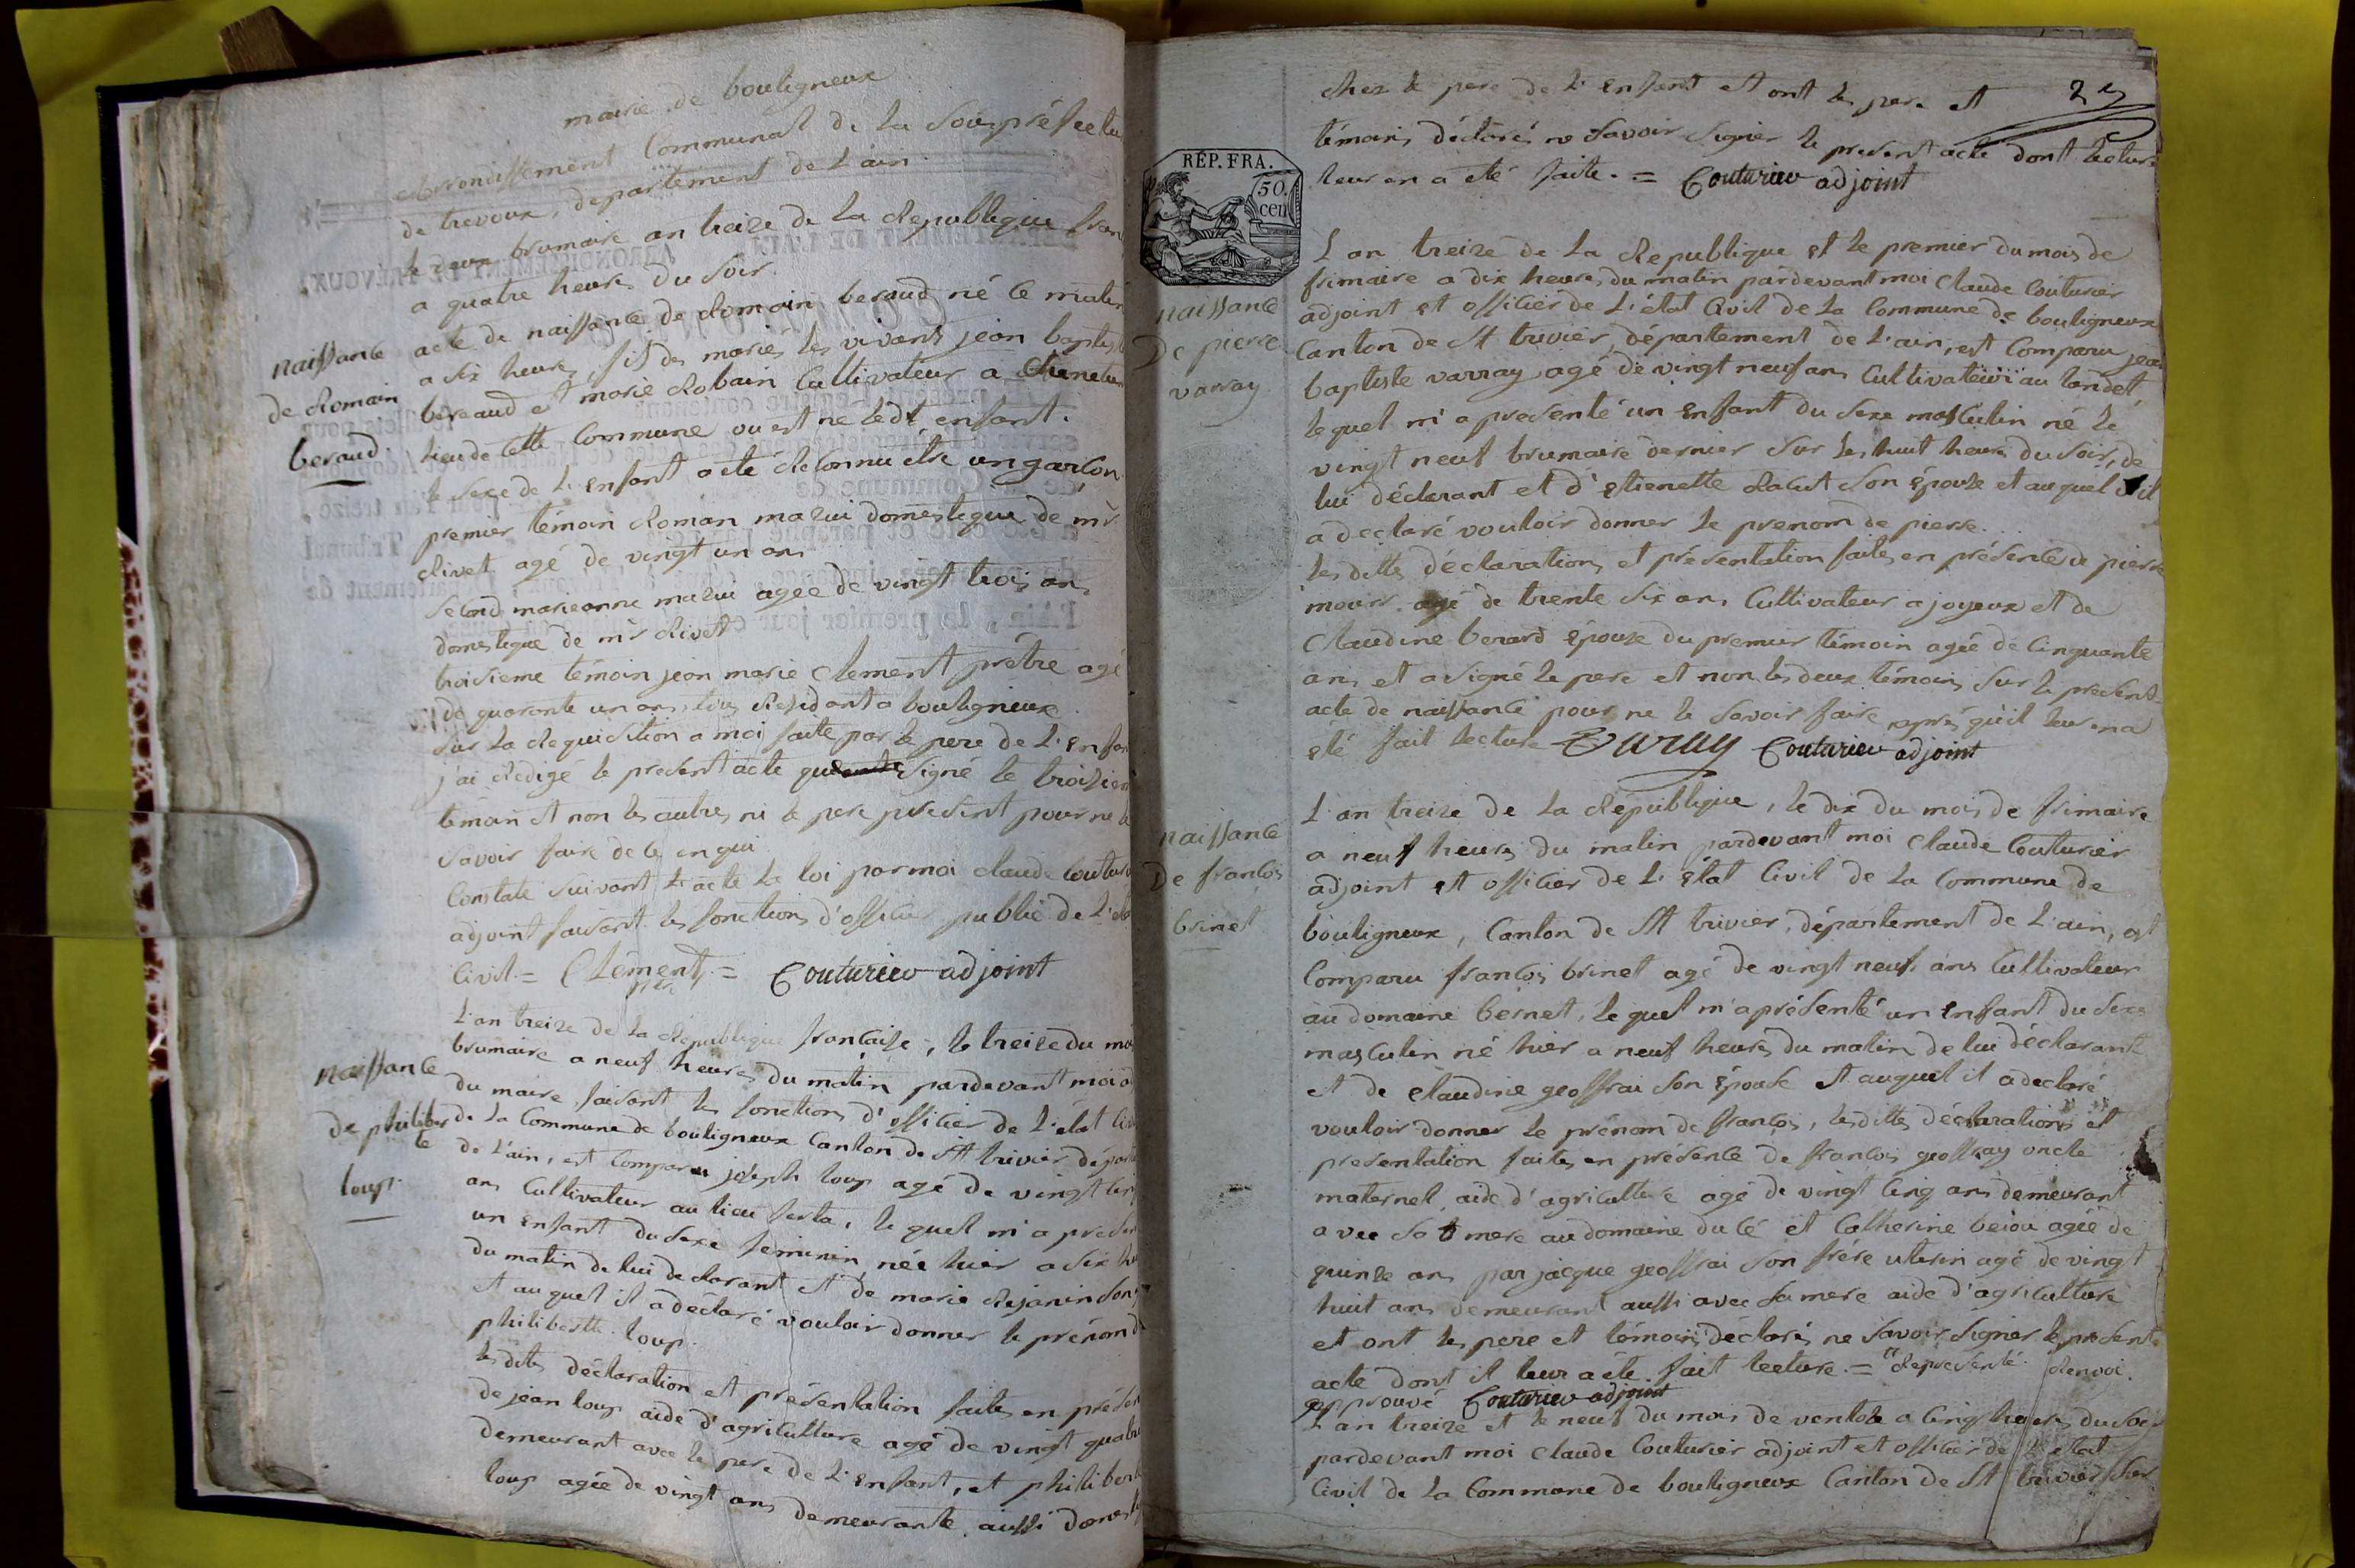 mairie de bouligneux
Arrondissement Communal de la Souspréfectu
de trevoux, département de L'ain.
le deux brumaire an treize de la Republique fran
a quatre heures du Soir.
naissance
de Romain
beraud.
acte de naissance de Romain beraud né ce matin
a six heures, fils des mariés les vivants jean baptist
beraud et marie Robain Cultivateur a
lieu de cette Commune ou est né ledt enfant.
le sexe de L'enfant a été Reconnu être un garçon
premier témoin Roman mazui domestique de mr
Rivet agé de vingt un ans
second marieanne mazui agée de vingt trois ans
domestique de mr Rivet
troisieme témoin jean marie Clement prêtre agé
de quarante un ans, tous Residants a bouligneux.
Sur la Requisition a moi faite par le pere de L'enfan
j'ai Redigé le présent acte qu Signé le troisiem
témoin et non les autres, ni le pere présent pour ne le
Savoir faire de ce enqui
Constaté Suivant L'acte la loi par moi claude Couturi
adjoint faisant les fonctions d'officier public de L'éta
Civil. = Clément = Couturier adjoint
naissance
de philiber
te
loup.
L'an treize de la Republique francaise, le treize du moi
brumaire a neuf heures du matin pardevant moi ad
du maire faisant les fonctions d'officier de L'état Civ
de la Commune de bouligneux Canton de St trivier départ
de L'ain, est Comparu joseph loup agé de vingt cinq
ans Cultivateur au lieu serta, le quel m'a présen
un enfant du Sexe féminin née hier a six heu
du matin de lui declarant et de marie Rejanin Son
et auquel il a déclaré vouloir donner le prénom d
philiberte loup.
les dites déclaration et présentation faites en présen
de jean loup aide d'agriculture agé de vingt quatre
demeurant avec le pere de L'enfant, et philibert
loup agée de vingt ans demeurante aussi domest
chez le pere de L'enfant et ont les pere et
témoins déclarés ne Savoir Signer le présent acte dont lecture
leur en a été faite. = Couturier adjoint
RÉP. FRA.
50.
cen
naissance
De pierre
varray
L'an treize de la Republique et le premier du mois de
frimaire a dix heures du matin pardevant moi Claude Couturier
adjoint et officier de L'état Civil de la Commune de bouligneux
Canton de St trivier, département de L'ain, est Comparu jean
baptiste varray agé de vingt neuf ans Cultivateur au tandet,
lequel m'a presenté un enfant du Sexe masculin né le
vingt neuf brumaire dernier Sur les huit heures du Soir, de
lui déclarant et d'etienette Racut Son épouse et auquel il
a declaré vouloir donner le prenom de pierre.
les dittes déclarations et présentation faites en présence de pierre
agé de trente six ans Cultivateur a joyeux et de
Claudine berard épouse du premier témoin agée de cinquante
ans et a Signé le pere et non les deux témoins Sur le présent
acte de naissance pour ne le Savoir faire après qu'il leur en a
été fait lecture Varray Couturier adjoint
naissance
De francois
brinet
L'an treize de la République, le dix du mois de frimaire
a neuf heures du matin pardevant moi Claude Couturier
adjoint et officier de L'état Civil de la Commune de
bouligneux, Canton de St trivier, département de L'ain, est
Comparu francois brinet agé de vingt neuf ans Cultivateur
au domaine bernet, le quel m'a présenté un enfant du Sexe
masculin né hier a neuf heures du matin de lui déclarant
et de Claudine geoffrai Son épouse et auquel il a declaré
vouloir donner le prénom de francois, les dittes déclarations et
presentation faites en présence de francois geoffray oncle
maternel, aide d'agriculture agé de vingt cinq ans demeurant
avec Sa mere au domaine du Cé et Catherine beiou agée de
quinze ans par jacque geoffrai Son frère uterin agé de vingt
huit ans demeurant aussi avec Sa mere aide d'agriculture
et ont les pere et témoins déclarés ne Savoir Signer le présent
acte dont il leur a été fait lecture. = Representé. Renvoi.
approuvé Couturier adjoint
L'an treize et le neuf du mois de ventose a cinq heures du Soir
pardevant moi Claude Couturier adjoint et officier de L'etat
Civil de la Commune de bouligneux Canton de St trivier Sur